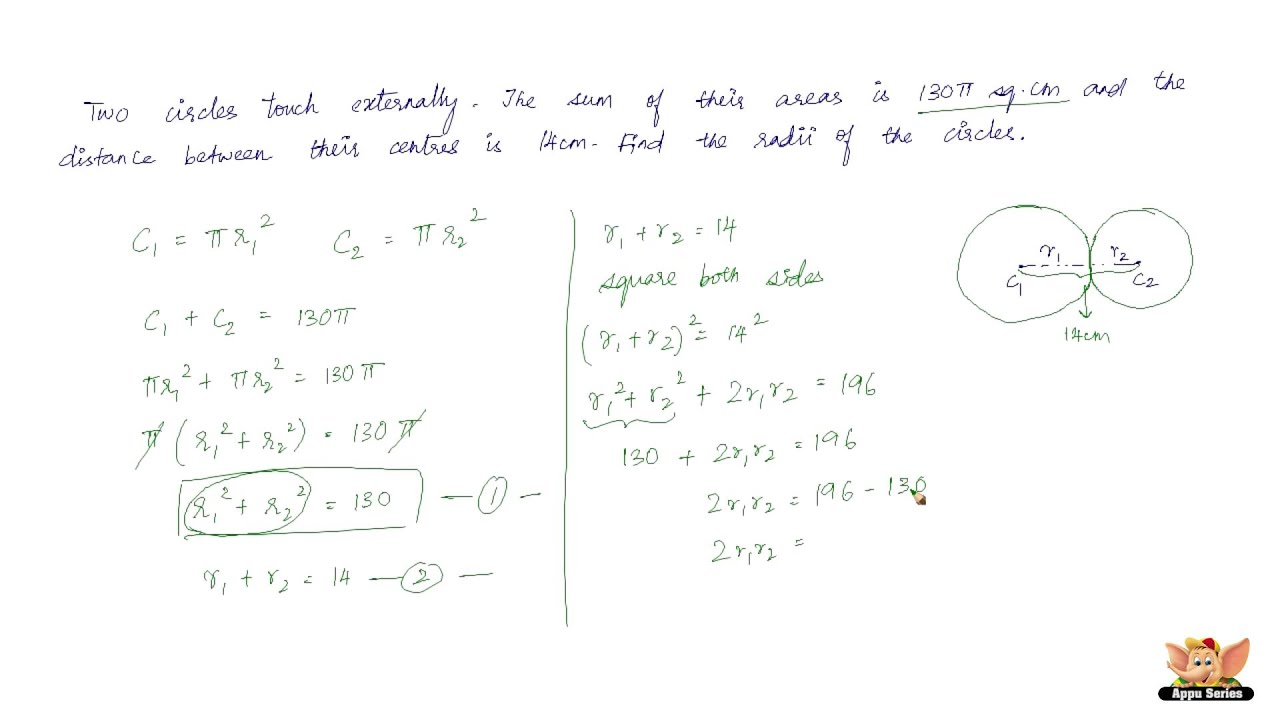 Two circles touch externally. The sum of their areas is 130π sq.cm and the
distance between their centres is 14cm. Find the radii of the circles.
C₁ = πr₁² C₂ = πr₂²
C₁ + C₂ = 130π
πr₁² + πr₂² = 130π
π(r₁² + r₂²) = 130π
r₁² + r₂² = 130 — ① —
r₁ + r₂ = 14 — ② —
r₁ + r₂ = 14
square both sides
(r₁ + r₂)² = 14²
r₁² + r₂² + 2r₁r₂ = 196
130 + 2r₁r₂ = 196
2r₁r₂ = 196 – 130
2r₁r₂ =
r₁ r₂
C₁ C₂
14cm
Appu Series